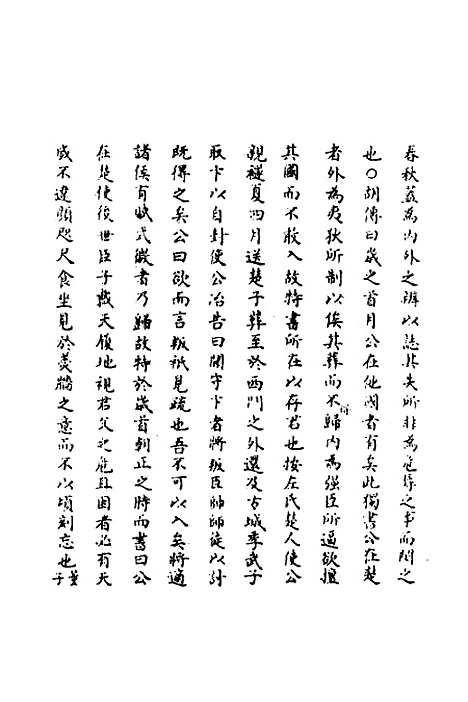 春秋蓋為內外之辨以誌其失所非為危辱之事而閔之
也○胡傳曰歲之首月公在他國者有矣此獨書公在楚
者外為夷狄所制以俟其葬而不歸內為强臣所逼欲擅
其國而不敢入故特書所在以存君也按左氏楚人使公
親襚夏四月送楚子葬至於西門之外還及方城季武子
取卞以自封使公冶告曰聞守卞者將叛臣帥師徒以討
既得之矣公曰欲而言叛祇見疏也吾不可以入矣將適
諸侯有賦式微者乃歸故特於歲首朝正之時而書曰公
在楚使後世臣子戴天履地視君父之危且困者必有天
威不違顏咫尺食坐見於羹牆之意而不以頃刻忘也董子